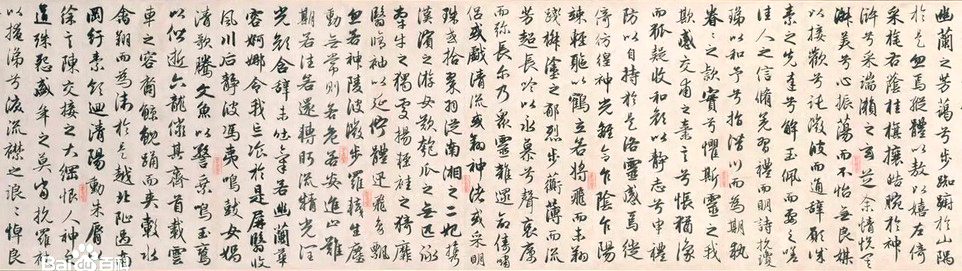 幽蘭之芳藹兮步踟躕於山隅
於是忽焉縱體以敖以嬉左倚
采旄右蔭桂旗攘皓腕於神
滸兮采湍瀨之玄芝余情悅其
淑美兮心振蕩而不怡無良媒
以接歡兮託微波而通辭願誠
素之先達兮解玉佩而要之嗟
佳人之信脩羌習禮而明詩抗瓊
珶以和予兮指潛川而為期執
眷眷之款實兮懼斯靈之我
欺感交甫之棄言兮悵猶豫
而狐疑收和顏以靜志兮申禮
防以自持於是洛靈感焉徙
倚仿偟神光離合乍陰乍陽
竦輕軀以鶴立若將飛而未翔
踐椒塗之郁烈步蘅薄而流
芳超長吟以永慕兮聲哀厲
而彌長爾乃眾靈雜遝命儔嘯
侶或戲清流或翔神渚或采明
珠或拾翠羽從南湘之二妃攜
漢濱之游女歎匏瓜之無匹詠
牽牛之獨處揚輕袿之猗靡
翳脩袖以延佇體迅飛鳧飄
忽若神陵波微步羅襪生塵
動無常則若危若安進止難
期若往若還轉眄流精光
顏含辭未吐氣若幽蘭華
容婀娜令我忘飡於是屏翳收
風川后靜波馮夷鳴鼓女媧
清歌騰文魚以警乘鳴玉鸞
以偕逝六龍儼其齊首載雲
車之容裔鯨鯢踊而夾轂水
禽翔而為衛於是越北沚過南
岡紆素領迴清陽動朱脣以
徐言陳交接之大綱恨人神之
道殊怨盛年之莫當抗羅袂
以掩涕兮淚流襟之浪浪悼良
Bai百科